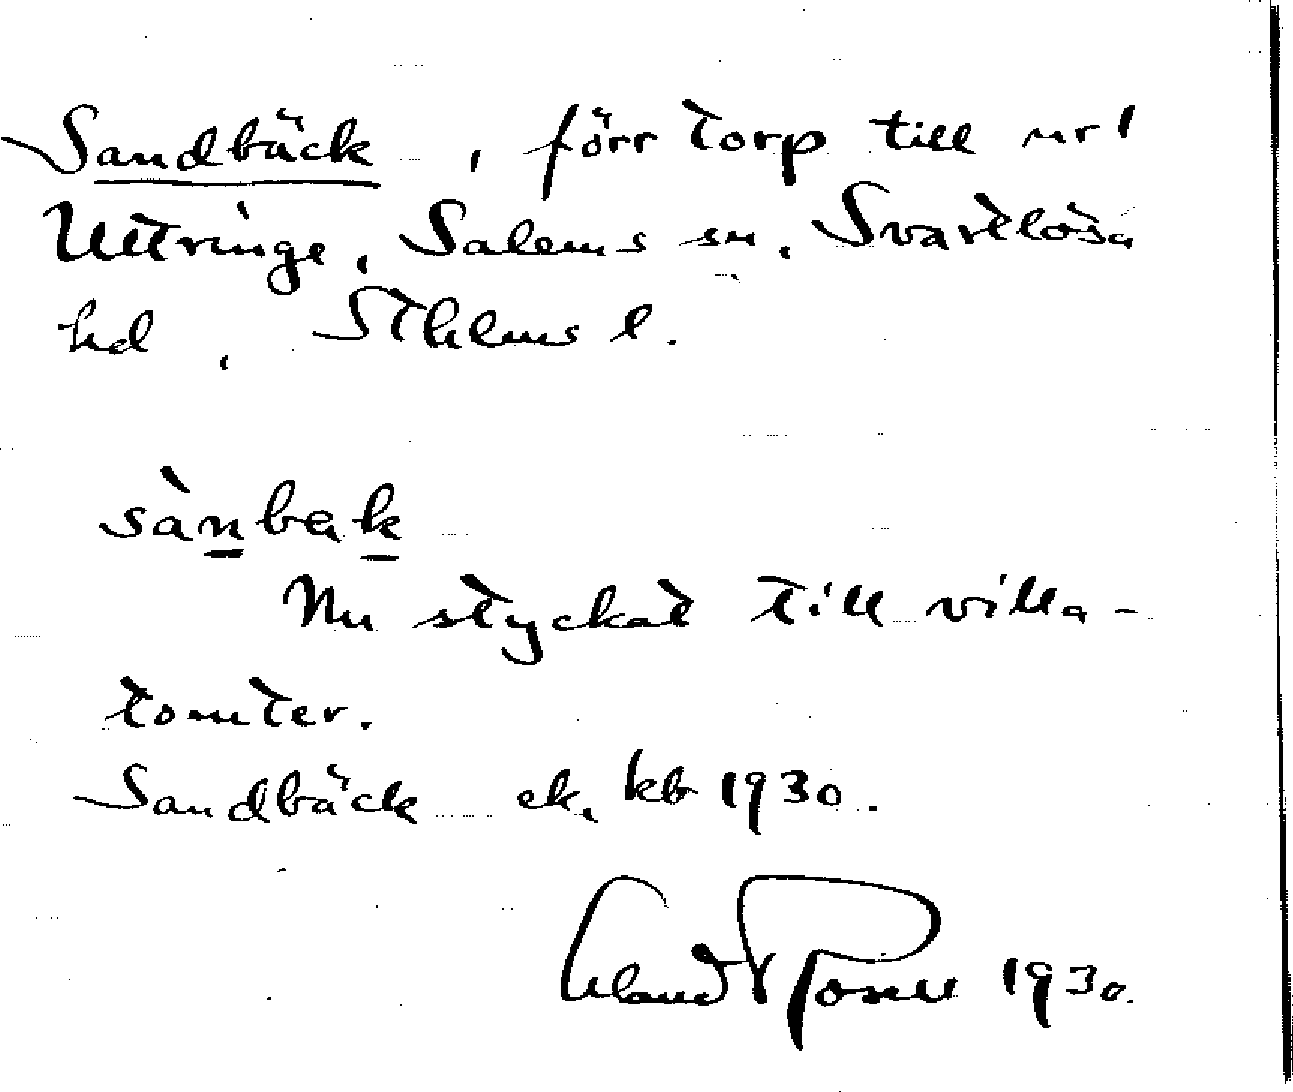 Sandbäck, förr torp till nr 1
Uttringe, Salems sn, Svartlösa
hd, Sthlms l.
sànbak
Nu styckat till villa-
tomter.
Sandbäck ek. kb 1930.
1930.